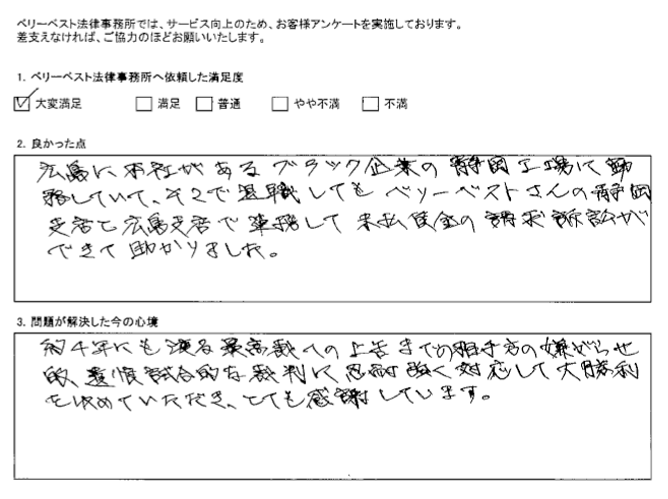 ベリーベスト法律事務所では、サービス向上のため、お客様アンケートを実施しております。
差支えなければ、ご協力のほどお願いいたします。
1. ベリーベスト法律事務所へ依頼した満足度
大変満足 満足 普通 やや不満 不満
2. 良かった点
広島に本社があるブラック企業の静岡工場にて勤
務していて、そこで退職してもベリーベストさんの静岡
支店と広島支店で連携して未払賃金の請求訴訟が
できて助かりました。
3. 問題が解決した今の心境
約4年にも渡る最高裁への上告までの相手方の嫌がらせ
的、遺恨試合的な裁判に忍耐強く対応して大勝利
を収めていただき、とても感謝しています。